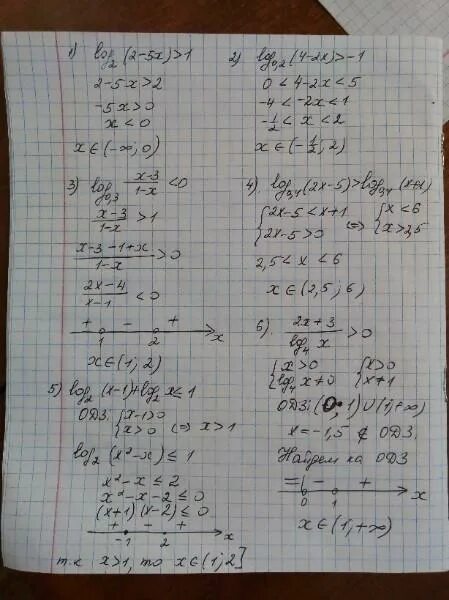 1) log₂(2-5x)>1
2-5x>2
-5x>0
x<0
x∈(-∞;0)
2) log₀,₂(4-2x)>-1
0<4-2x<5
-4<-2x<1
-1/2<x<2
x∈(-1/2;2)
3) log₀,₃ (x-3)/(1-x)<0
(x-3)/(1-x)>1
(x-3-1+x)/(1-x)>0
(2x-4)/(x-1)<0
+ - +
1 2 x
x∈(1;2)
4) log₀,₁(2x-5)>log₀,₁(x+1)
{2x-5<x+1 {x<6
{2x-5>0 ⇔ {x>2,5
2,5<x<6
x∈(2,5;6)
5) log₂(x-1)+log₂x≤1
ОДЗ: {x-1>0
{x>0 ⇔ x>1
log₂(x²-x)≤1
x²-x≤2
x²-x-2≤0
(x+1)(x-2)≤0
+ - +
-1 2 x
т.к x>1, то x∈(1;2]
6) (2x+3)/(log₄x)>0
{x>0 {x>0
{log₄x≠0 {x≠1
ОДЗ: (0;1)∪(1;+∞)
x=-1,5 ∉ ОДЗ.
Найдем на ОДЗ
- +
0 1 x
x∈(1;+∞)